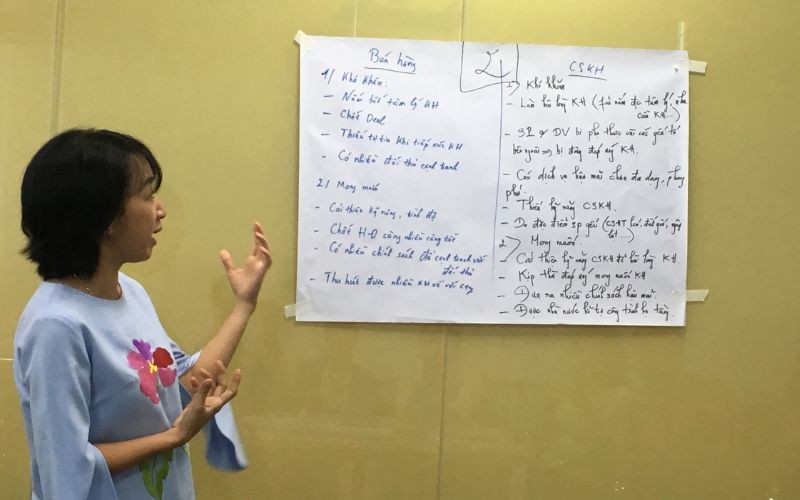 Bán hàng
1/ Khó khăn:
- Nắm bắt tâm lý KH
- Chốt Deal
- Thiếu tự tin khi tiếp xúc KH
- Có nhiều đối thủ cạnh tranh
2/ Mong muốn
- Cải thiện kỹ năng, trình độ
- Chốt H-Đ càng nhiều càng tốt
- Có nhiều chính sách để cạnh tranh với
đối thủ
- Thu hút được nhiều KH về với cty
CSKH
1 Khó khăn
- Làm hài lòng KH (phải nắm đc tâm lý, nhu
cầu KH...)
- SL & DV bị phụ thuộc vào các yếu tố
bên ngoài => bị động đáp ứng KH.
- Các dịch vụ hậu mãi chưa đa dạng, phong
phú.
- Thiếu kỹ năng CSKH.
- Do đặc điểm sp yếu (CSHT
2 Mong muốn
- Cải thiện kỹ năng CSKH để hài lòng KH
- Kịp thời đáp ứng mong muốn KH
- Đưa ra nhiều chính sách hậu mãi.
- Được nhà nước hỗ trợ công trình hạ tầng.